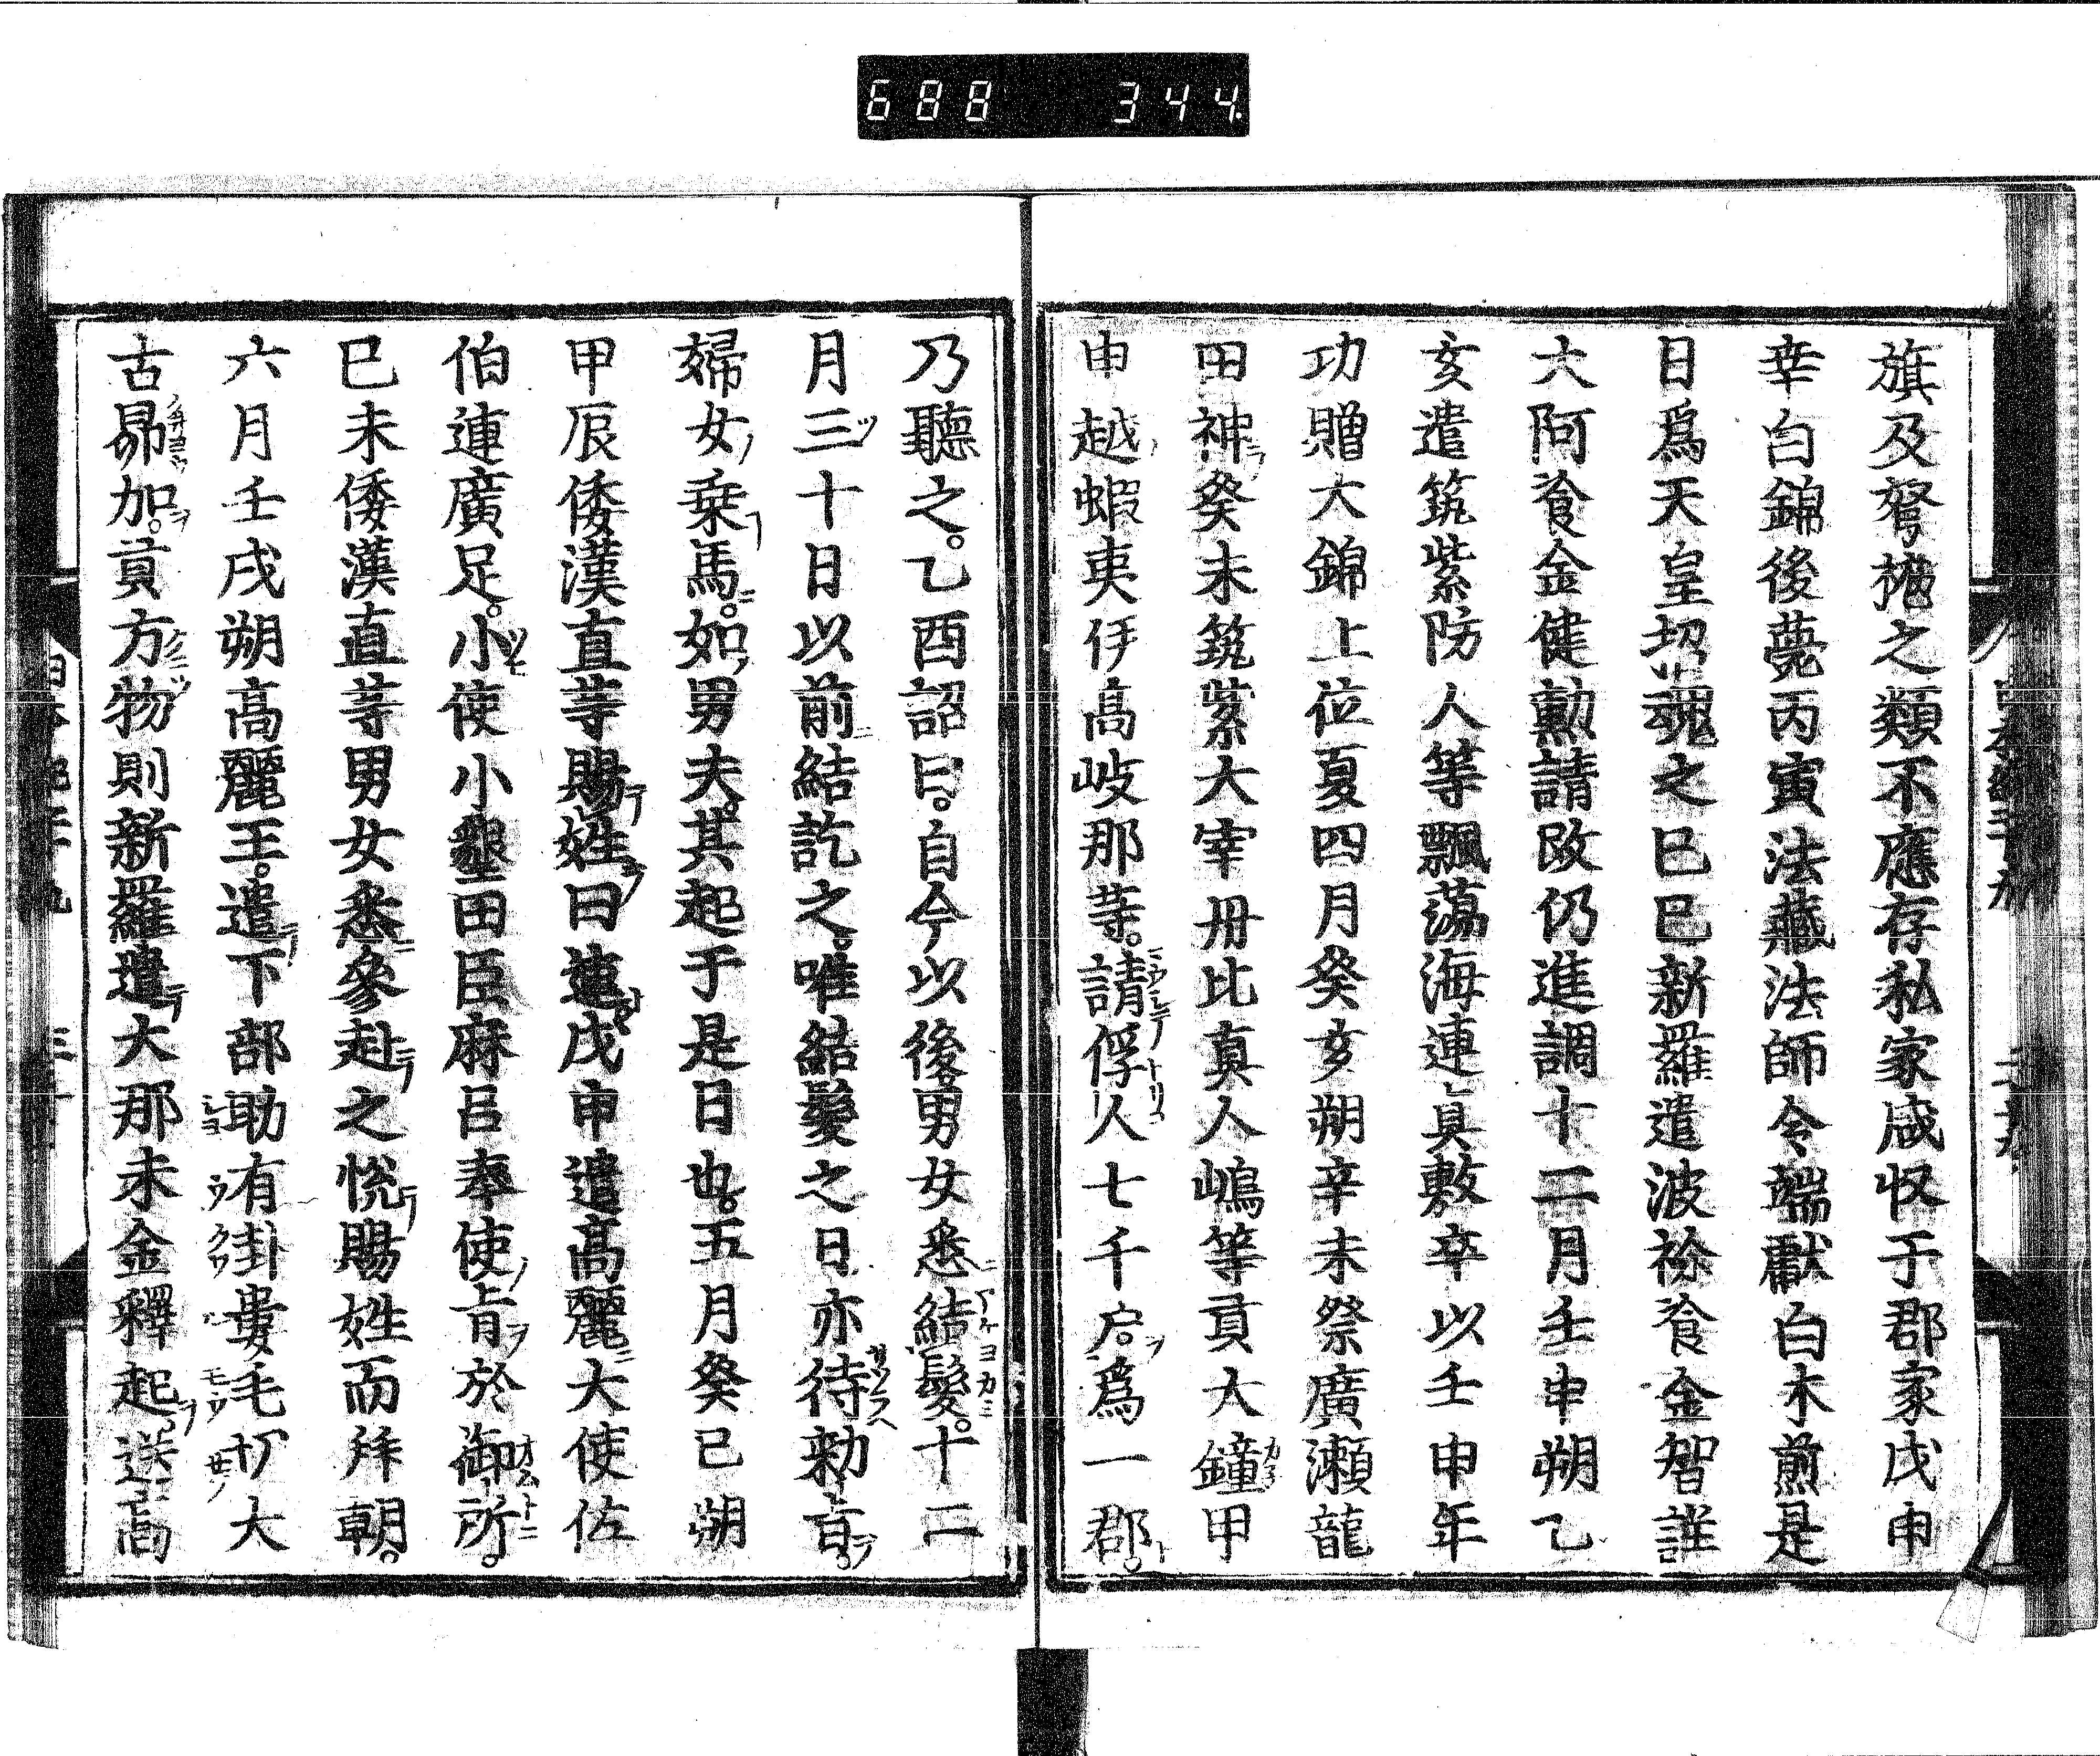 688 344
旗及弩拋之類不應存私家咸收于郡家戊申
幸白錦後菀丙寅法藏法師令端獻白木煎是
日爲天皇招魂之己巳新羅遣波祢飡金智詳
大阿飡金健勳請政仍進調十二月壬申朔乙
亥遣筑紫防人等飄蕩海連真敷卒以壬申年
功贈大錦上位夏四月癸亥朔辛未祭廣瀬龍
田神癸未筑紫大宰丹比真人嶋等貢大鐘甲
申越蝦夷伊高岐那等。請俘人七千戸。爲一郡。
乃聽之。乙酉詔曰。自今以後男女悉結髮。十二
月三十日以前結訖之。唯結髮之日亦待勅旨。
婦女乗馬。如男夫。其起于是日也。五月癸巳朔
甲辰倭漢直等賜姓曰連戊申遣高麗大使佐
伯連廣足。小使小墾田臣麻呂奉使肯於御所。
己未倭漢直等男女悉參赴之悅賜姓而拜朝。
六月壬戌朔高麗王。遣下部助有掛婁毛切大
古昴加。貢方物則新羅遣大那末金釋起送高